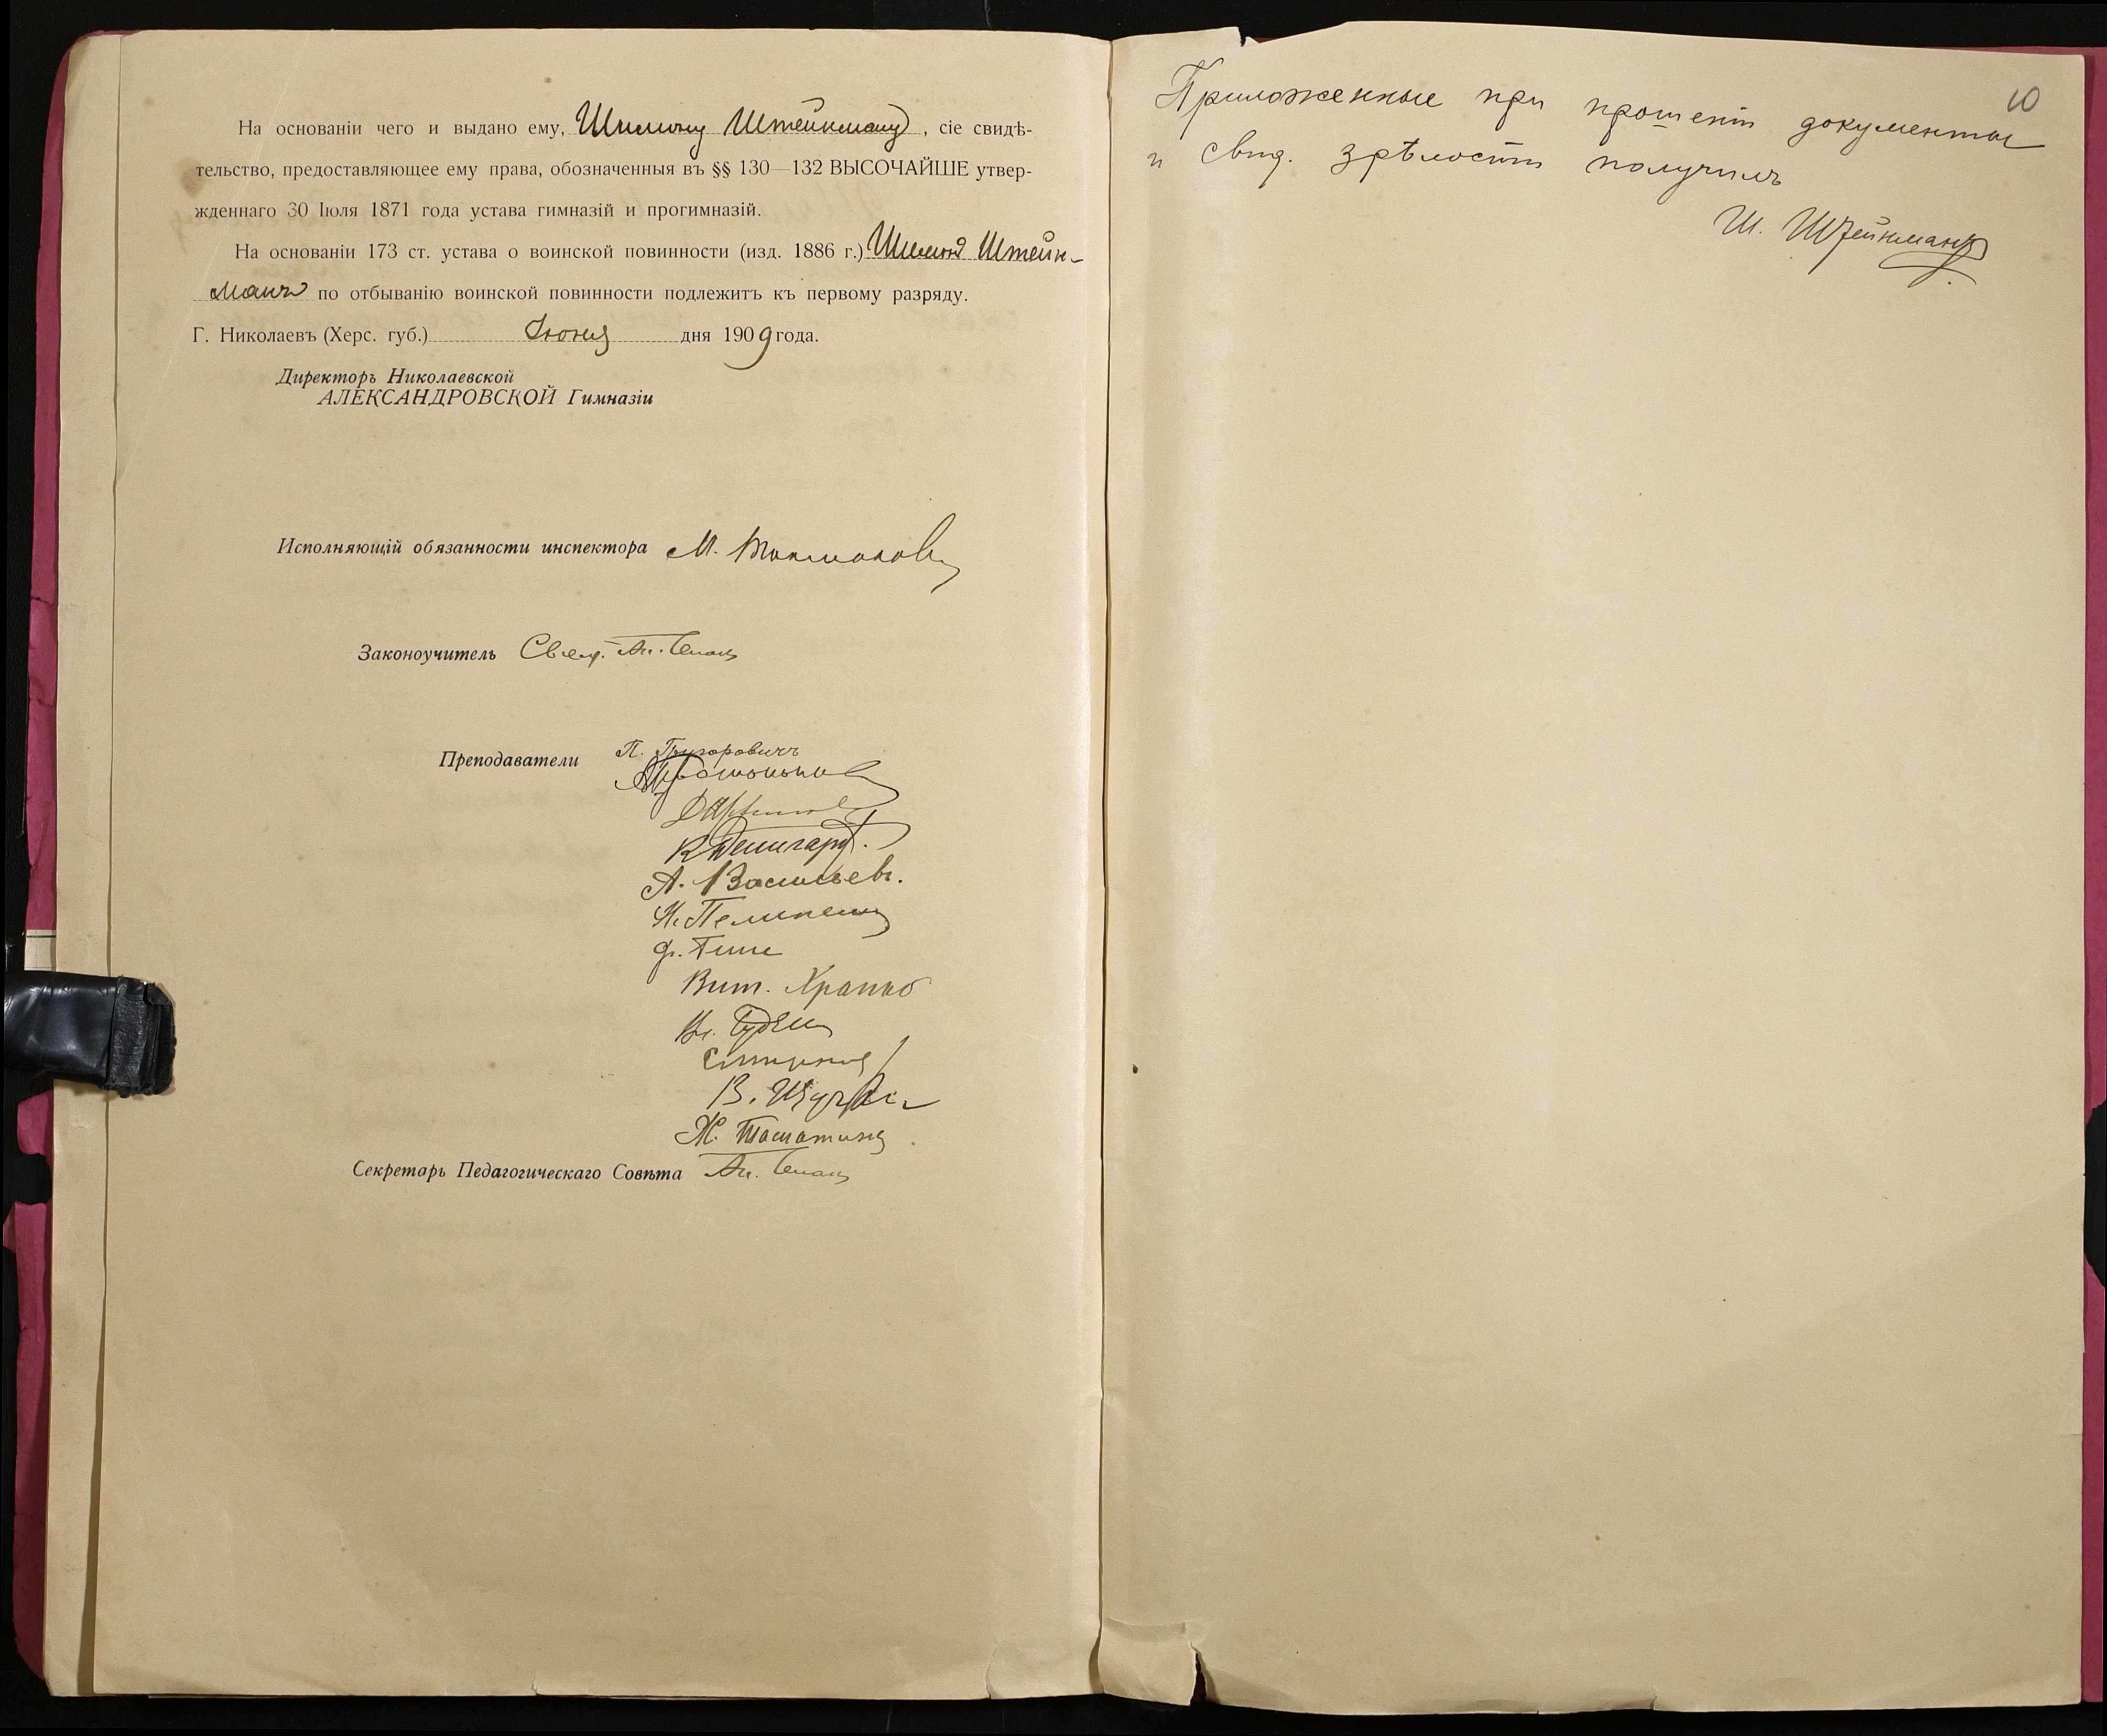 На основаніи чего и выдано ему, Шимону Штейнману, сіе свидѣ-
тельство, предоставляющее ему права, обозначенныя въ §§ 130—132 ВЫСОЧАЙШЕ утвер-
жденнаго 30 Іюля 1871 года устава гимназій и прогимназій.
На основаніи 173 ст. устава о воинской повинности (изд. 1886 г.) Шимонъ Штейн-
манъ по отбыванію воинской повинности подлежитъ къ первому разряду.
Г. Николаевъ (Херс. губ.) Іюня дня 1909 года.
Директоръ Николаевской
АЛЕКСАНДРОВСКОЙ Гимназіи
Исполняющій обязанности инспектора М.
Законоучитель Свящ.
Преподаватели П. Григоровичъ
А. Васильевъ.
Вит. Храпко
Секретарь Педагогическаго Совѣта
10
Приложенные при прошеніи документы
и свид. зрѣлости получилъ
Ш. Штейнманъ